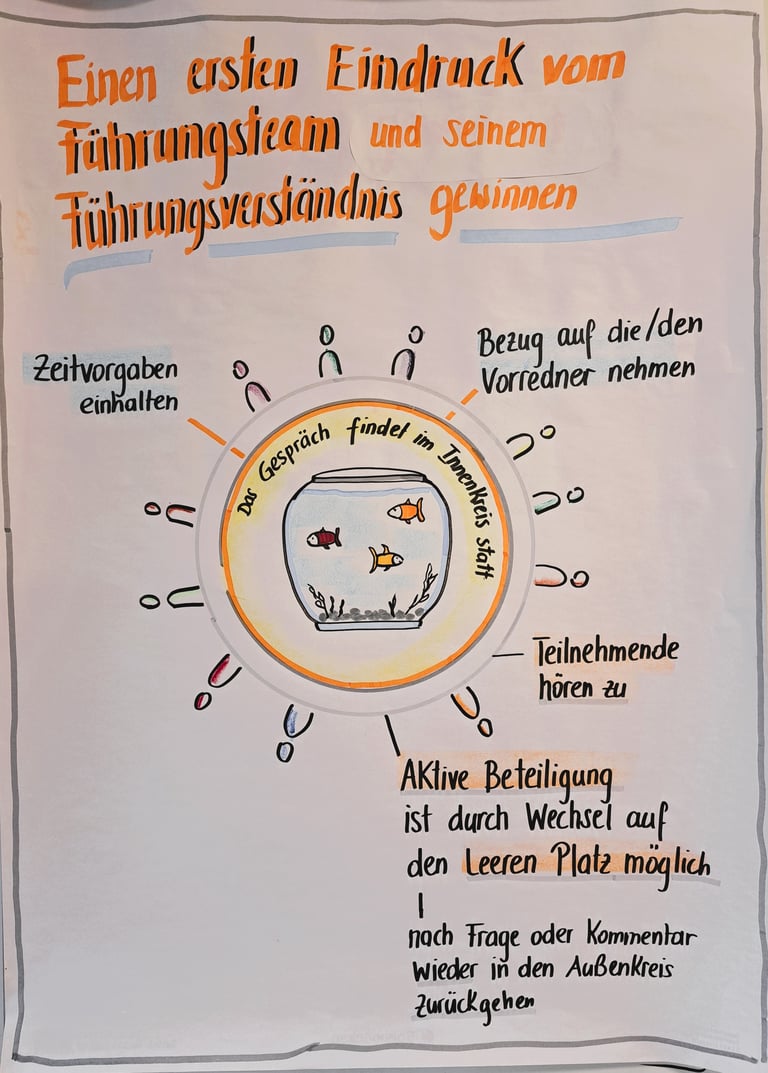 Einen ersten Eindruck vom
Führungsteam und seinem
Führungsverständnis gewinnen
Zeitvorgaben
einhalten
Bezug auf die/den
Vorredner nehmen
Das Gespräch findet im Innenkreis statt
Teilnehmende
hören zu
Aktive Beteiligung
ist durch Wechsel auf
den Leeren Platz möglich
nach Frage oder Kommentar
wieder in den Außenkreis
zurückgehen